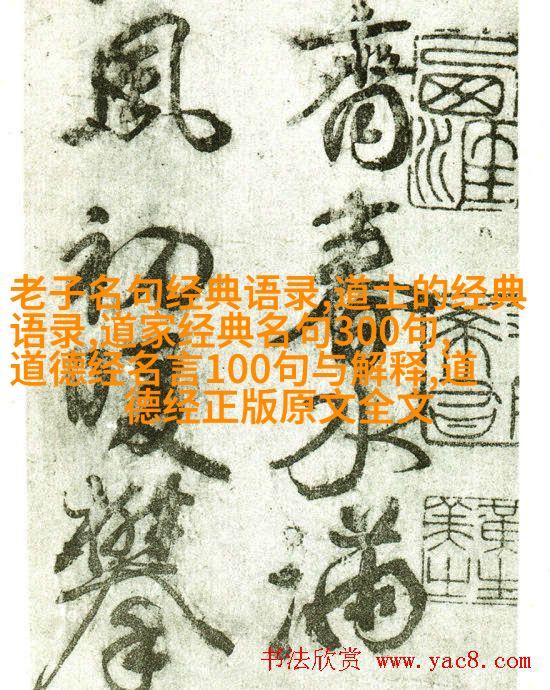 春水滿
風初暖攀
老子名句经典语录,道士的经典
语录,道家经典名句300句,
道德经名言100句与解释,道
德经正版原文全文
书法欣赏 www.yac8.com